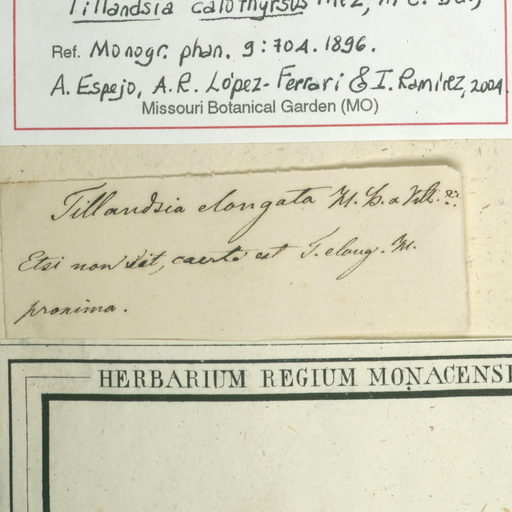 Tillandsia calothyrsus Mez,
Ref. Monogr. phan. 9:704. 1896.
A. Espejo, A.R. López-Ferrari & I. Ramírez, 2004
Missouri Botanical Garden (MO)
Tillandsia elongata H. B.
Etsi non sit, certe est T. elong. H.
proxima.
HERBARIUM REGIUM MONACENS